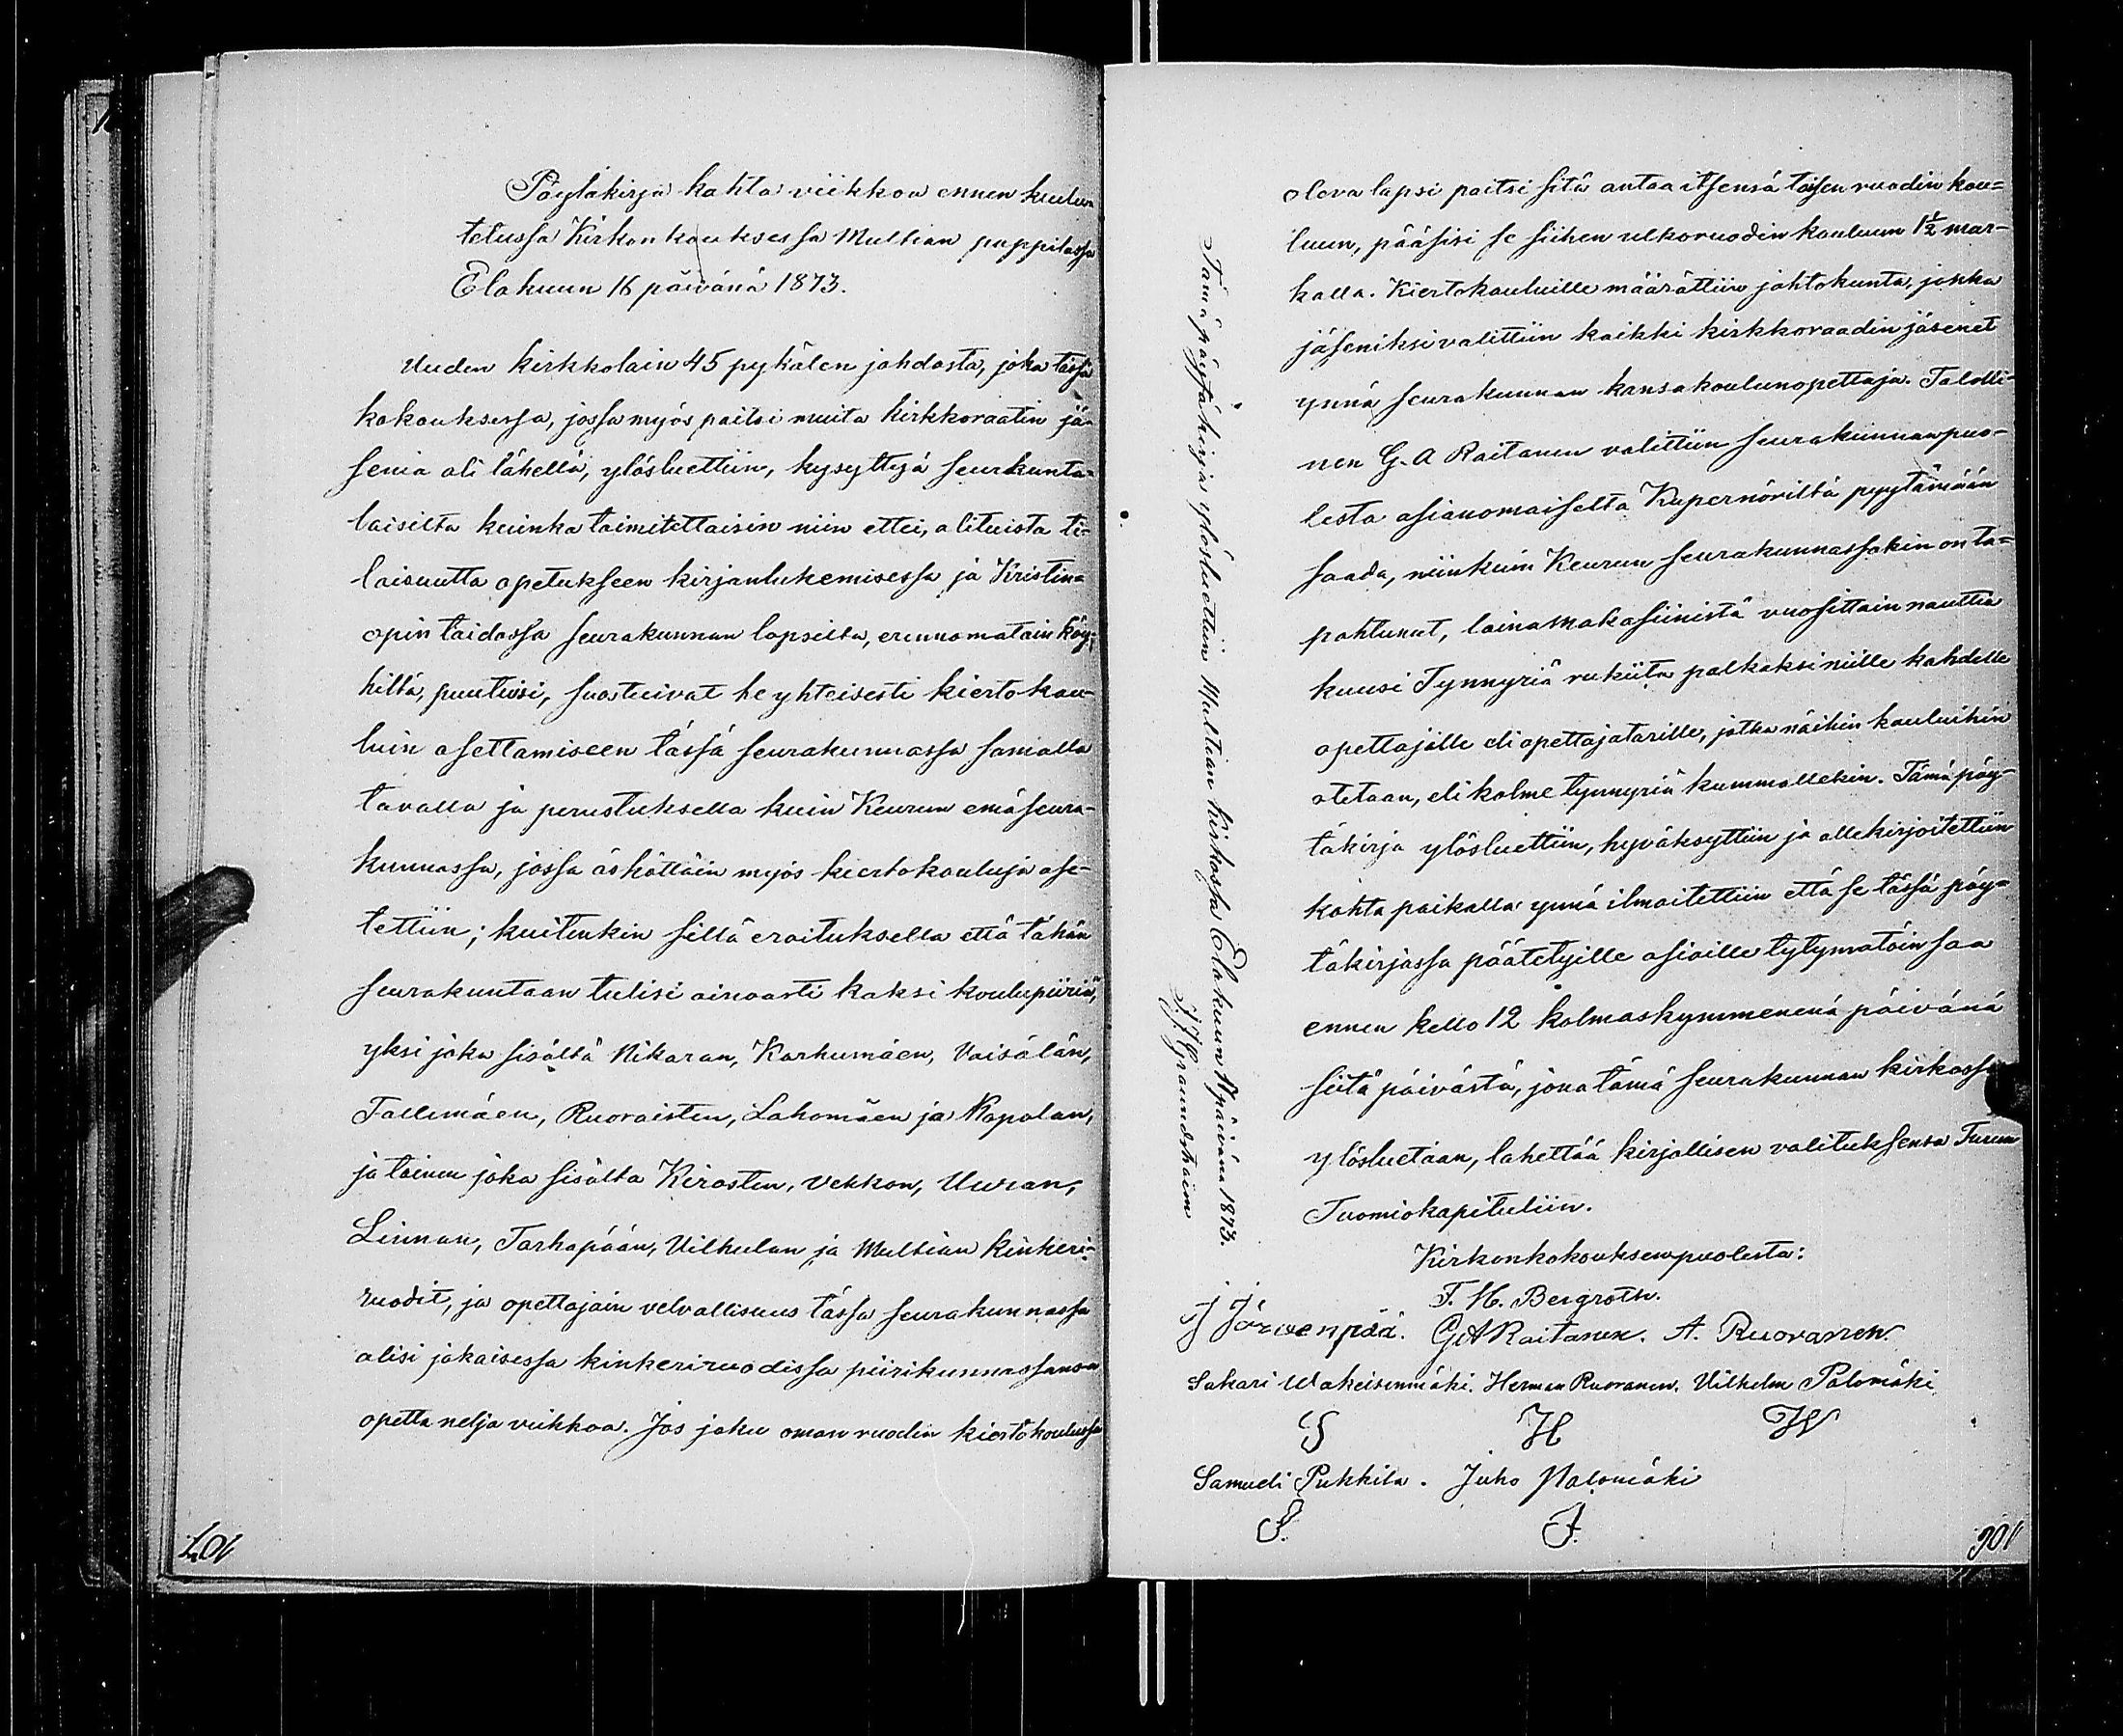 Pöytäkirja kahta viikkoa ennen kuulu-
tetussa Kirkonkouksessa Multian pappilassa
Elokuun 16 päivänä 1873.
Uuden kirkkolain 45 pykälen johdosta, joka tässä
kokouksessa, jossa myös paitsi muita kirkkoraatin jä-
seniä oli lähellä, ylösluettiin, kysyttyä seurkunta-
laisilta kuinka toimitettaisin niin ettei, olituista ti-
laisuutta opetukseen kirjanlukemisessa ja Kristin-
opin taidossa seurakunnan lapsilta, erinnomatain köy-
hiltä, puutuisi, suostuivat he yhteisesti kiertokou-
luin asettamiseen tässä seurakunnassa samalla
tavalla ja perustuksella kuin Keurun emäseura-
kunnassa, jossa äskettäin myös kiertokouluja ase-
tettiin; kuitenkin sillä eroituksella että tähän
seurakuntaan tulisi ainoasti kaksi koulupiiriä,
yksi joka sisältä Nikaran, Karhumäen, Väisälän,
Tallimäen, Ruoraisten, Lahomäen ja Kapolan,
ja toinen joka sisältä Kirosten, Vekkon, Uuran,
Linnan, Tarhapään, Vilhulan ja Multian kinkeri-
ruodit, ja opettajain velvallisuus tässä seurakunnassa
olisi jokaisessa kinkeriruodissa piirikunnassansa
opetta neljä viikkoa. Jos joku oman ruodin kiertokoulussa
107
oleva lapsi paitsi sitä antaa itsensä toisen ruodin kou-
luun, pääsisi se siihen ulkoruodin kouluun 1½ mar-
kalla. Kiertokouluille määrättiin johtokunta, jonka
jäseniksi valittiin kaikki kirkkoraadin jäsenet
ynnä seurakunnan kansakoulunopettaja. Talolli-
nen G. A Raitanen valittiin seurakunnan puo-
lesta asianomaiselta Kupernöriltä pyytämään
saada, niinkuin Keurun seurakunnassakin on ta-
pahtunut, lainamakasiinistä vuosittain nauttia
kuusi Tynnyriä rukiita palkaksi niille kahdelle
opettajalle eli opettajatarille, jotka näihin kouluihin
otetaan, eli kolme tynnyriä kummallekin. Tämä pöy-
täkirja ylösluettiin, hyväksyttiin ja allekirjoitettiin
kohta paikalla ynnä ilmoitettiin että se tässä pöy-
täkirjassa päätetyille asioille tytymatöin saa
ennen kello 12 kolmaskymmenenä päivänä
siitä päivästä, jona tämä seurakunnan kirkossa
ylösluetaan, lahettää kirjallisen valituksensa Turun
Tuomiokapituliin.
Kirkonkokouksen puolesta:
F. H. Bergroth.
J Järvenpää. G A Raitanen. A. Ruoranen.
Sakari Wakeisenmäki. Herman Ruoranen. Vilhelm Palomäki
S H W
Samueli Pukkila. Juho Palomäki
S. J.
106
Tämä pöytäkirja ylösluettiin Multian kirkossa Elokuun päivänä 1873.